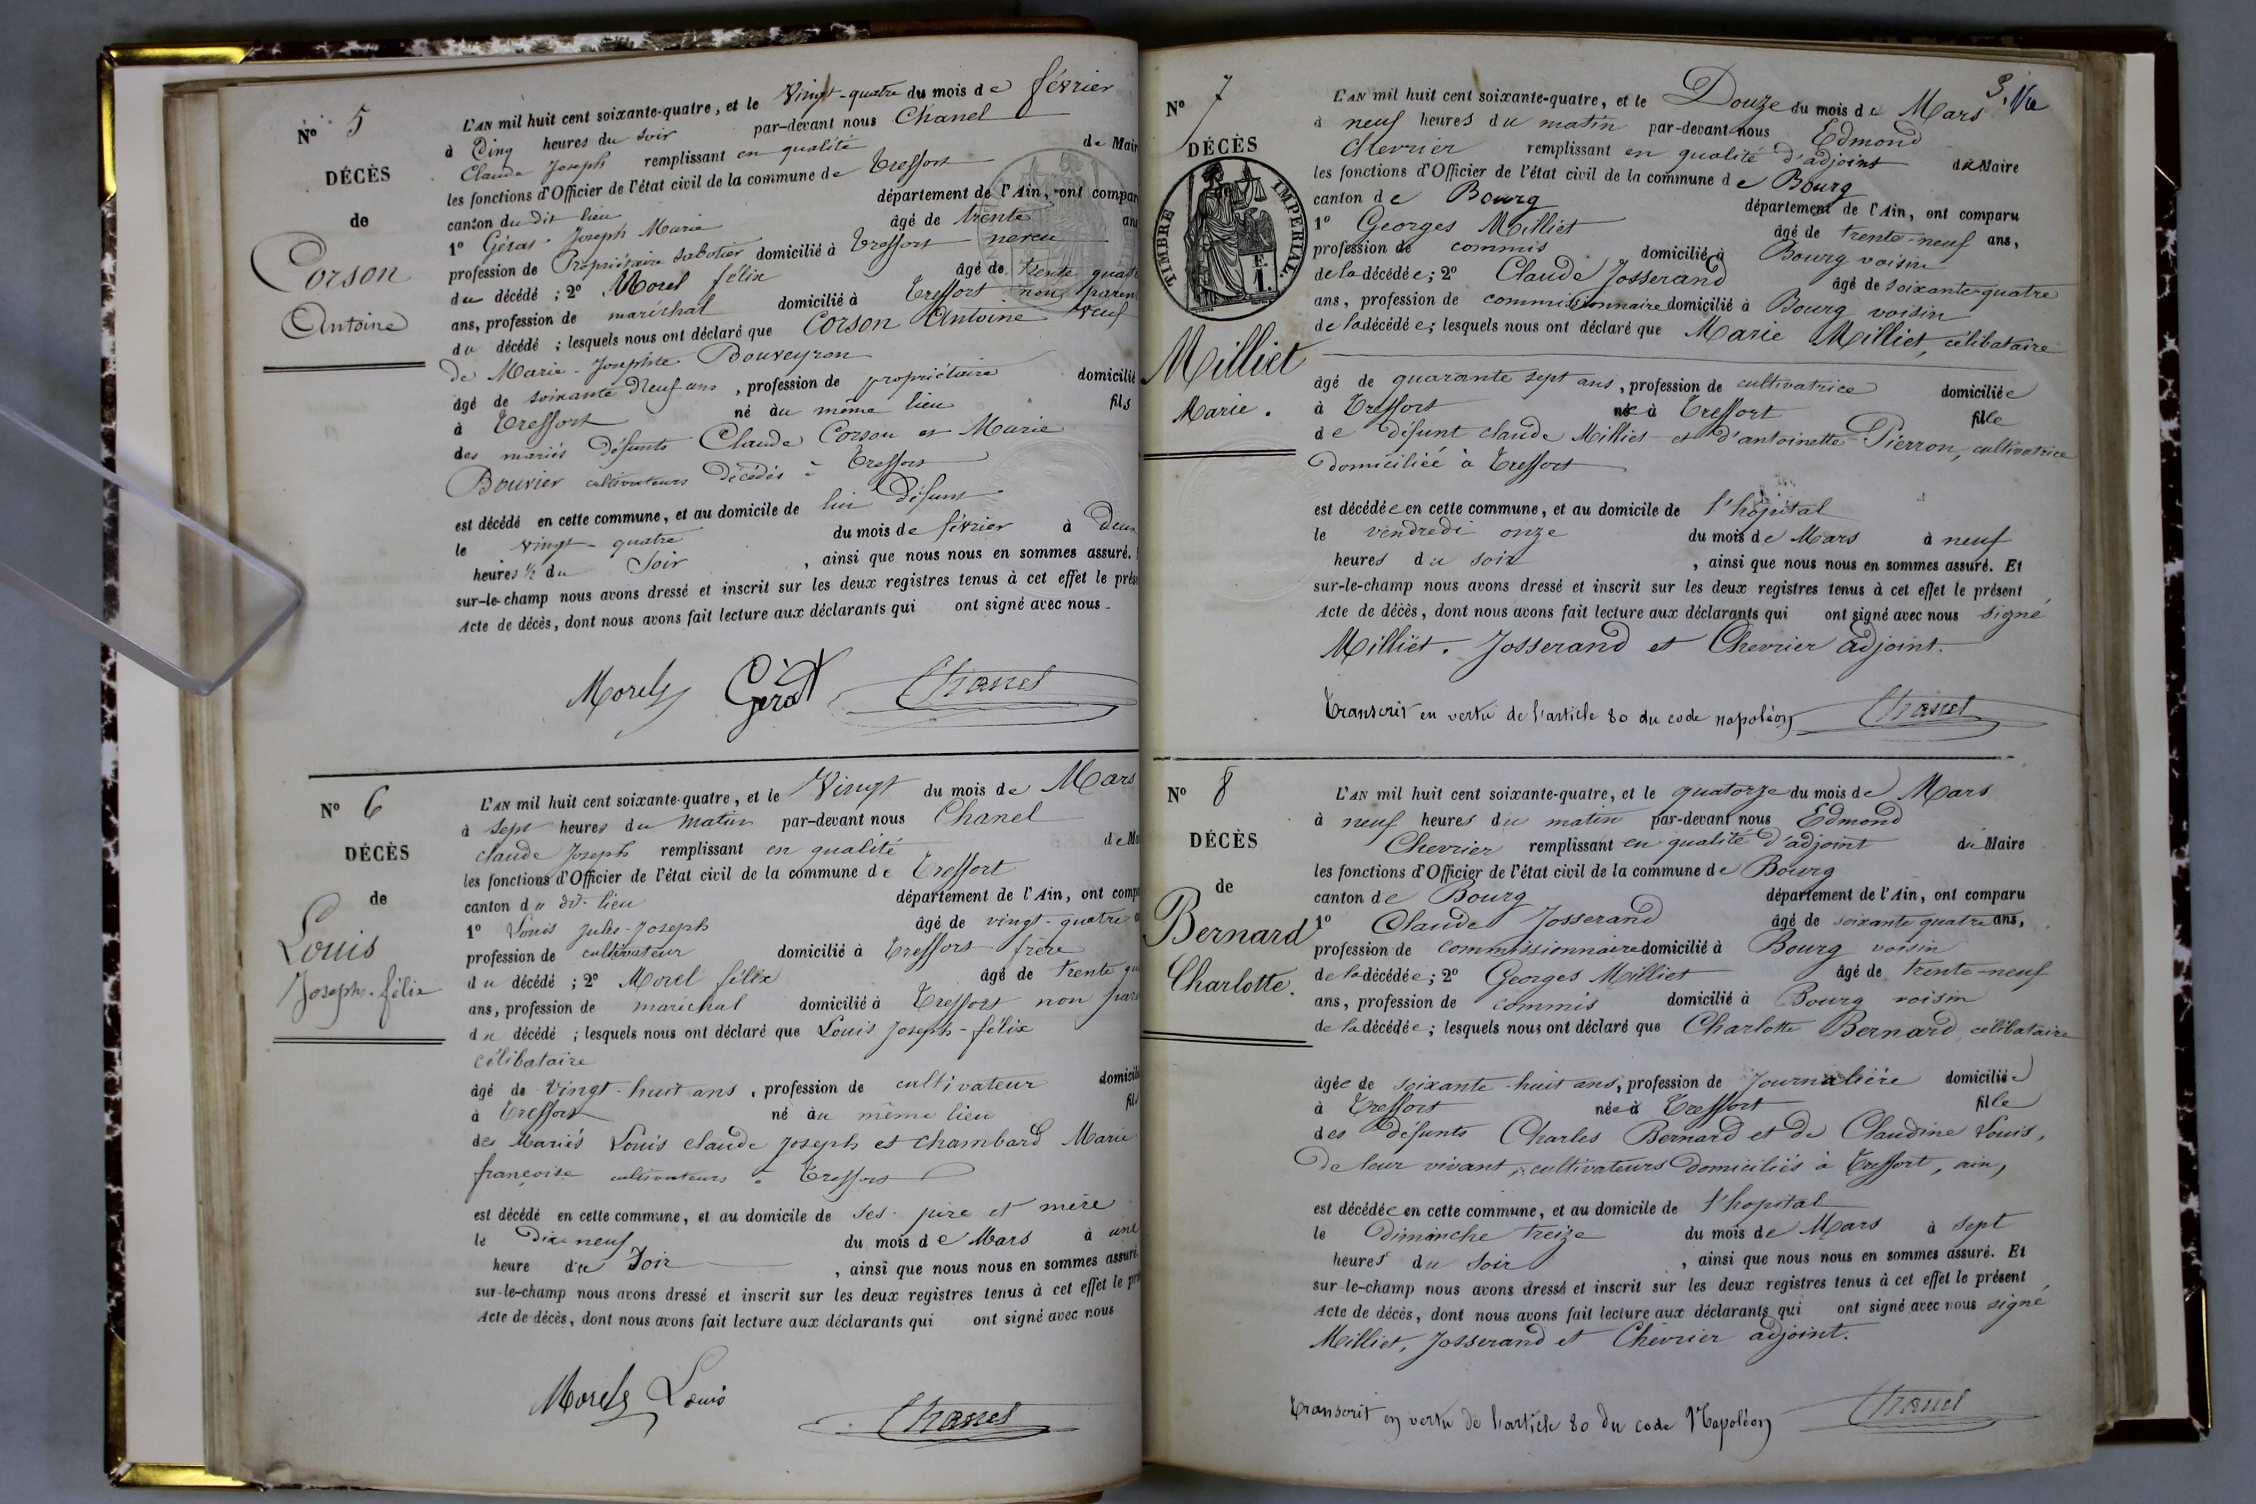 N° 5
DÉCÈS
de
Corson
Antoine
L'AN mil huit cent soixante-quatre, et le Vingt-quatre du mois de février
à Cinq heures du soir par-devant nous Chanel
Claude Joseph remplissant en qualité de Mair
les fonctions d'Officier de l'état civil de la commune de Treffort
canton du dit lieu département de l'Ain, ont compar
1° Géras Joseph Marie âgé de trente ans
profession de Propriétaire sabotier domicilié à Treffort neveu
du décédé ; 2° Morel félix âgé de trente quat
ans, profession de maréchal domicilié à Treffort non parent
du décédé ; lesquels nous ont déclaré que Corson Antoine veuf
de Marie-Josephte Bouveyron
âgé de soixante neuf ans, profession de propriétaire domicilié
à Treffort né au même lieu fils
des mariés défunts Claude Corson et Marie
Bouvier cultivateurs décédés à Treffort
est décédé en cette commune, et au domicile de lui défunt
le vingt-quatre du mois de février à deux
heures ½ du Soir, ainsi que nous nous en sommes assuré.
sur-le-champ nous avons dressé et inscrit sur les deux registres tenus à cet effet le prése
Acte de décès, dont nous avons fait lecture aux déclarants qui ont signé avec nous.
Morel Gerat Chanel
N° 6
DÉCÈS
de
Louis
Joseph-félix
L'AN mil huit cent soixante-quatre, et le Vingt du mois de Mars
à sept heures du matin par-devant nous Chanel
claude Joseph remplissant en qualité de Ma
les fonctions d'Officier de l'état civil de la commune de Treffort
canton du dit lieu département de l'Ain, ont comp
1° Louis Jules-Joseph âgé de vingt-quatre
profession de cultivateur domicilié à Treffort frère
du décédé ; 2° Morel félix âgé de trente qu
ans, profession de maréchal domicilié à Treffort non par
du décédé ; lesquels nous ont déclaré que Louis Joseph-félix
célibataire
âgé de Vingt-huit ans, profession de cultivateur domicili
à Treffort né au même lieu fils
des Mariés Louis claude Joseph et chambard Marie
françoise cultivateurs à Treffort
est décédé en cette commune, et au domicile de ses père et mère
le Dix-neuf du mois de Mars à une
heure du Soir, ainsi que nous nous en sommes assuré.
sur-le-champ nous avons dressé et inscrit sur les deux registres tenus à cet effet le pré
Acte de décès, dont nous avons fait lecture aux déclarants qui ont signé avec nous
Morel Louis
Chanel
N° 7
DÉCÈS
TIMBRE IMPÉRIAL
F.
1.
Milliet
Marie.
L'AN mil huit cent soixante-quatre, et le Douze du mois de Mars
à neuf heures du matin par-devant nous Edmond
Chevrier remplissant en qualité d'adjoint du Maire
les fonctions d'Officier de l'état civil de la commune de Bourg
canton de Bourg département de l'Ain, ont comparu
1° Georges Milliet âgé de trente-neuf ans,
profession de commis domicilié à Bourg voisin
de la décédée ; 2° Claude Josserand âgé de soixante-quatre
ans, profession de commissionnaire domicilié à Bourg voisin
de la décédée ; lesquels nous ont déclaré que Marie Milliet, célibataire
âgé de quarante sept ans, profession de cultivatrice domiciliée
à Treffort née à Treffort fille
de défunt claude Milliet et d'antoinette Pierron, cultivatrice
domiciliée à Treffort
est décédée en cette commune, et au domicile de l'hôpital
le vendredi onze du mois de Mars à neuf
heures du soir, ainsi que nous nous en sommes assuré. Et
sur-le-champ nous avons dressé et inscrit sur les deux registres tenus à cet effet le présent
Acte de décès, dont nous avons fait lecture aux déclarants qui ont signé avec nous signé
Milliet. Josserand et Chevrier adjoint.
Transcrit en vertu de l'article 80 du code napoléon Chanel
N° 8
DÉCÈS
de
Bernard
Charlotte.
L'AN mil huit cent soixante-quatre, et le quatorze du mois de Mars
à neuf heures du matin par-devant nous Edmond
Chevrier remplissant en qualité d'adjoint du Maire
les fonctions d'Officier de l'état civil de la commune de Bourg
canton de Bourg département de l'Ain, ont comparu
1° Claude Josserand âgé de soixante quatre ans,
profession de commissionnaire domicilié à Bourg voisin
de la décédée ; 2° Georges Milliet âgé de trente-neuf
ans, profession de commis domicilié à Bourg voisin
de la décédée ; lesquels nous ont déclaré que Charlotte Bernard, célibataire
âgée de soixante-huit ans, profession de Journalière domiciliée
à Treffort née à Treffort fille
des défunts Charles Bernard et de Claudine Louis,
de leur vivant, cultivateurs domiciliés à Treffort, ain,
est décédée en cette commune, et au domicile de l'hopital
le dimanche treize du mois de Mars à sept
heures du soir, ainsi que nous nous en sommes assuré. Et
sur-le-champ nous avons dressé et inscrit sur les deux registres tenus à cet effet le présent
Acte de décès, dont nous avons fait lecture aux déclarants qui ont signé avec nous signé
Milliet, Josserand et Chevrier adjoint.
Transcrit en vertu de l'article 80 du code Napoléon Chanel